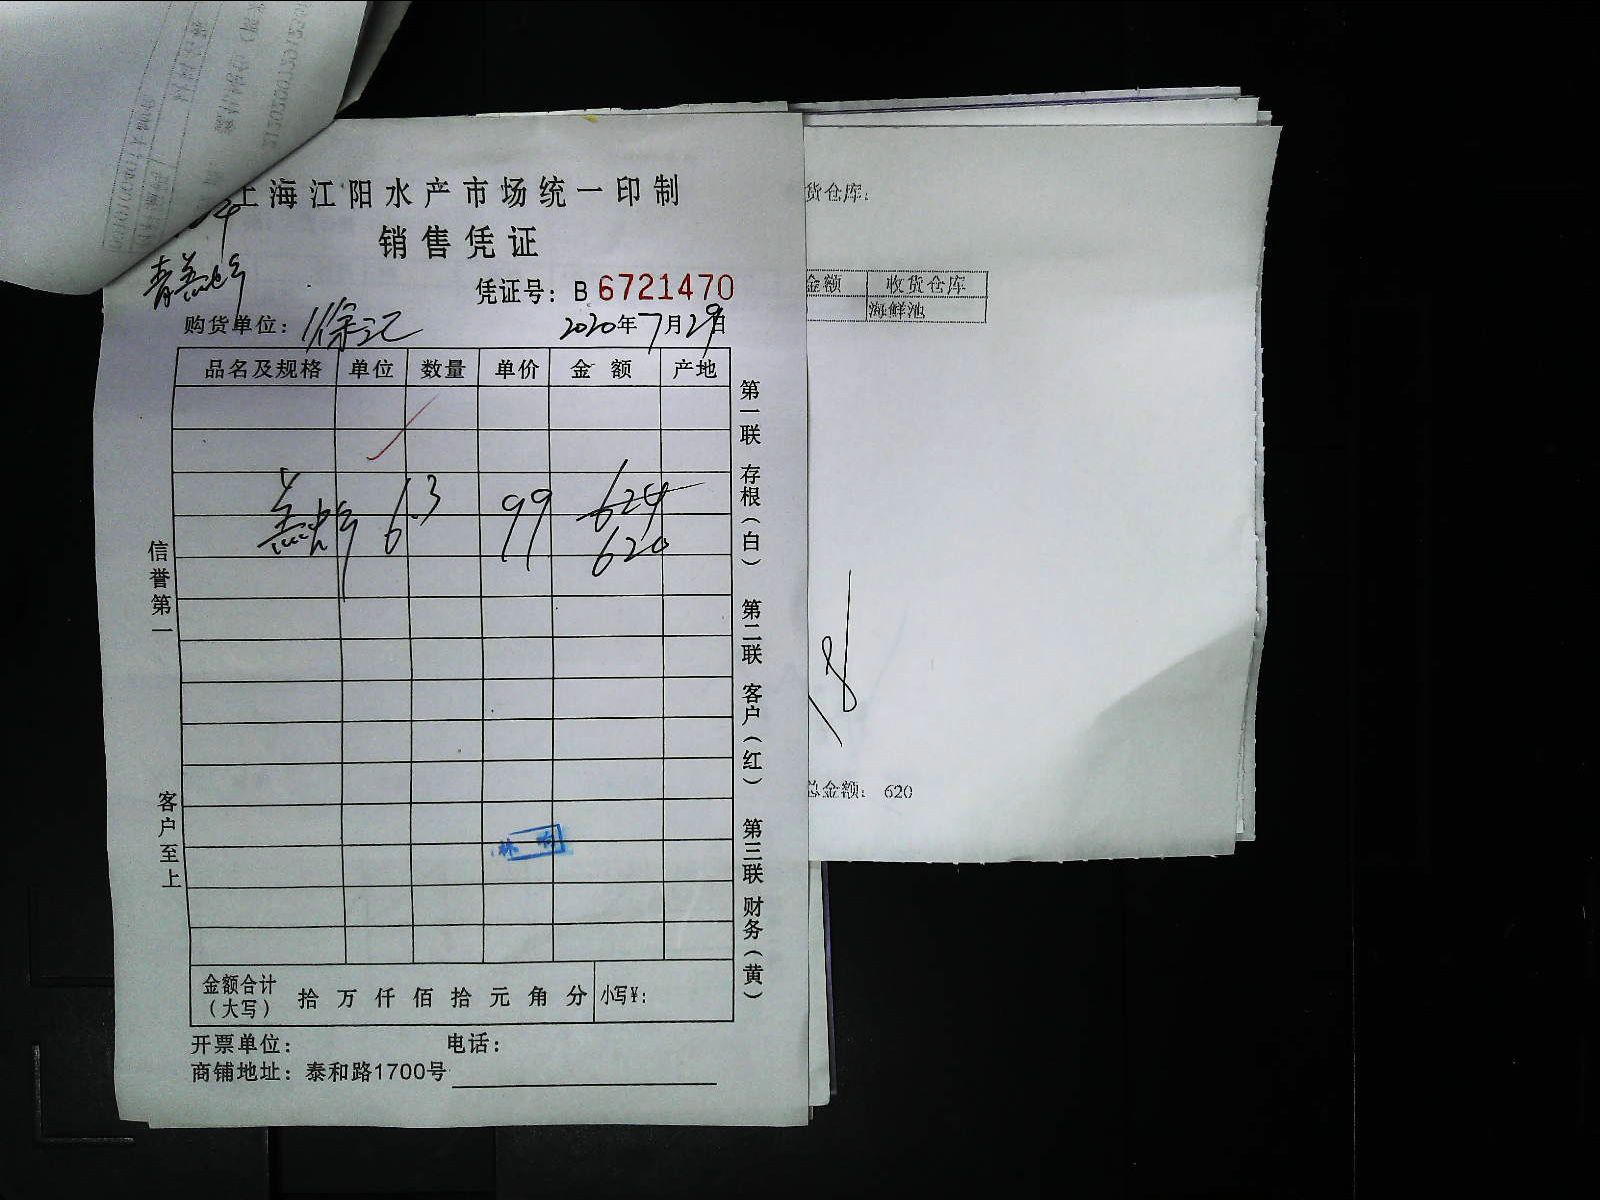 上海江阳水产市场统一印制
销售凭证
凭证号：B 6721470
购货单位：徐记 2020年7月29日
品名及规格 单位 数量 单价 金额 产地
6.3 99 624
620
信誉第一
客户至上
第一联 存根（白） 第二联 客户（红） 第三联 财务（黄）
金额合计（大写） 拾 万 仟 佰 拾 元 角 分 小写¥：
开票单位： 电话：
商铺地址：泰和路1700号
货仓库：
金额 收货仓库
海鲜池
总金额：620